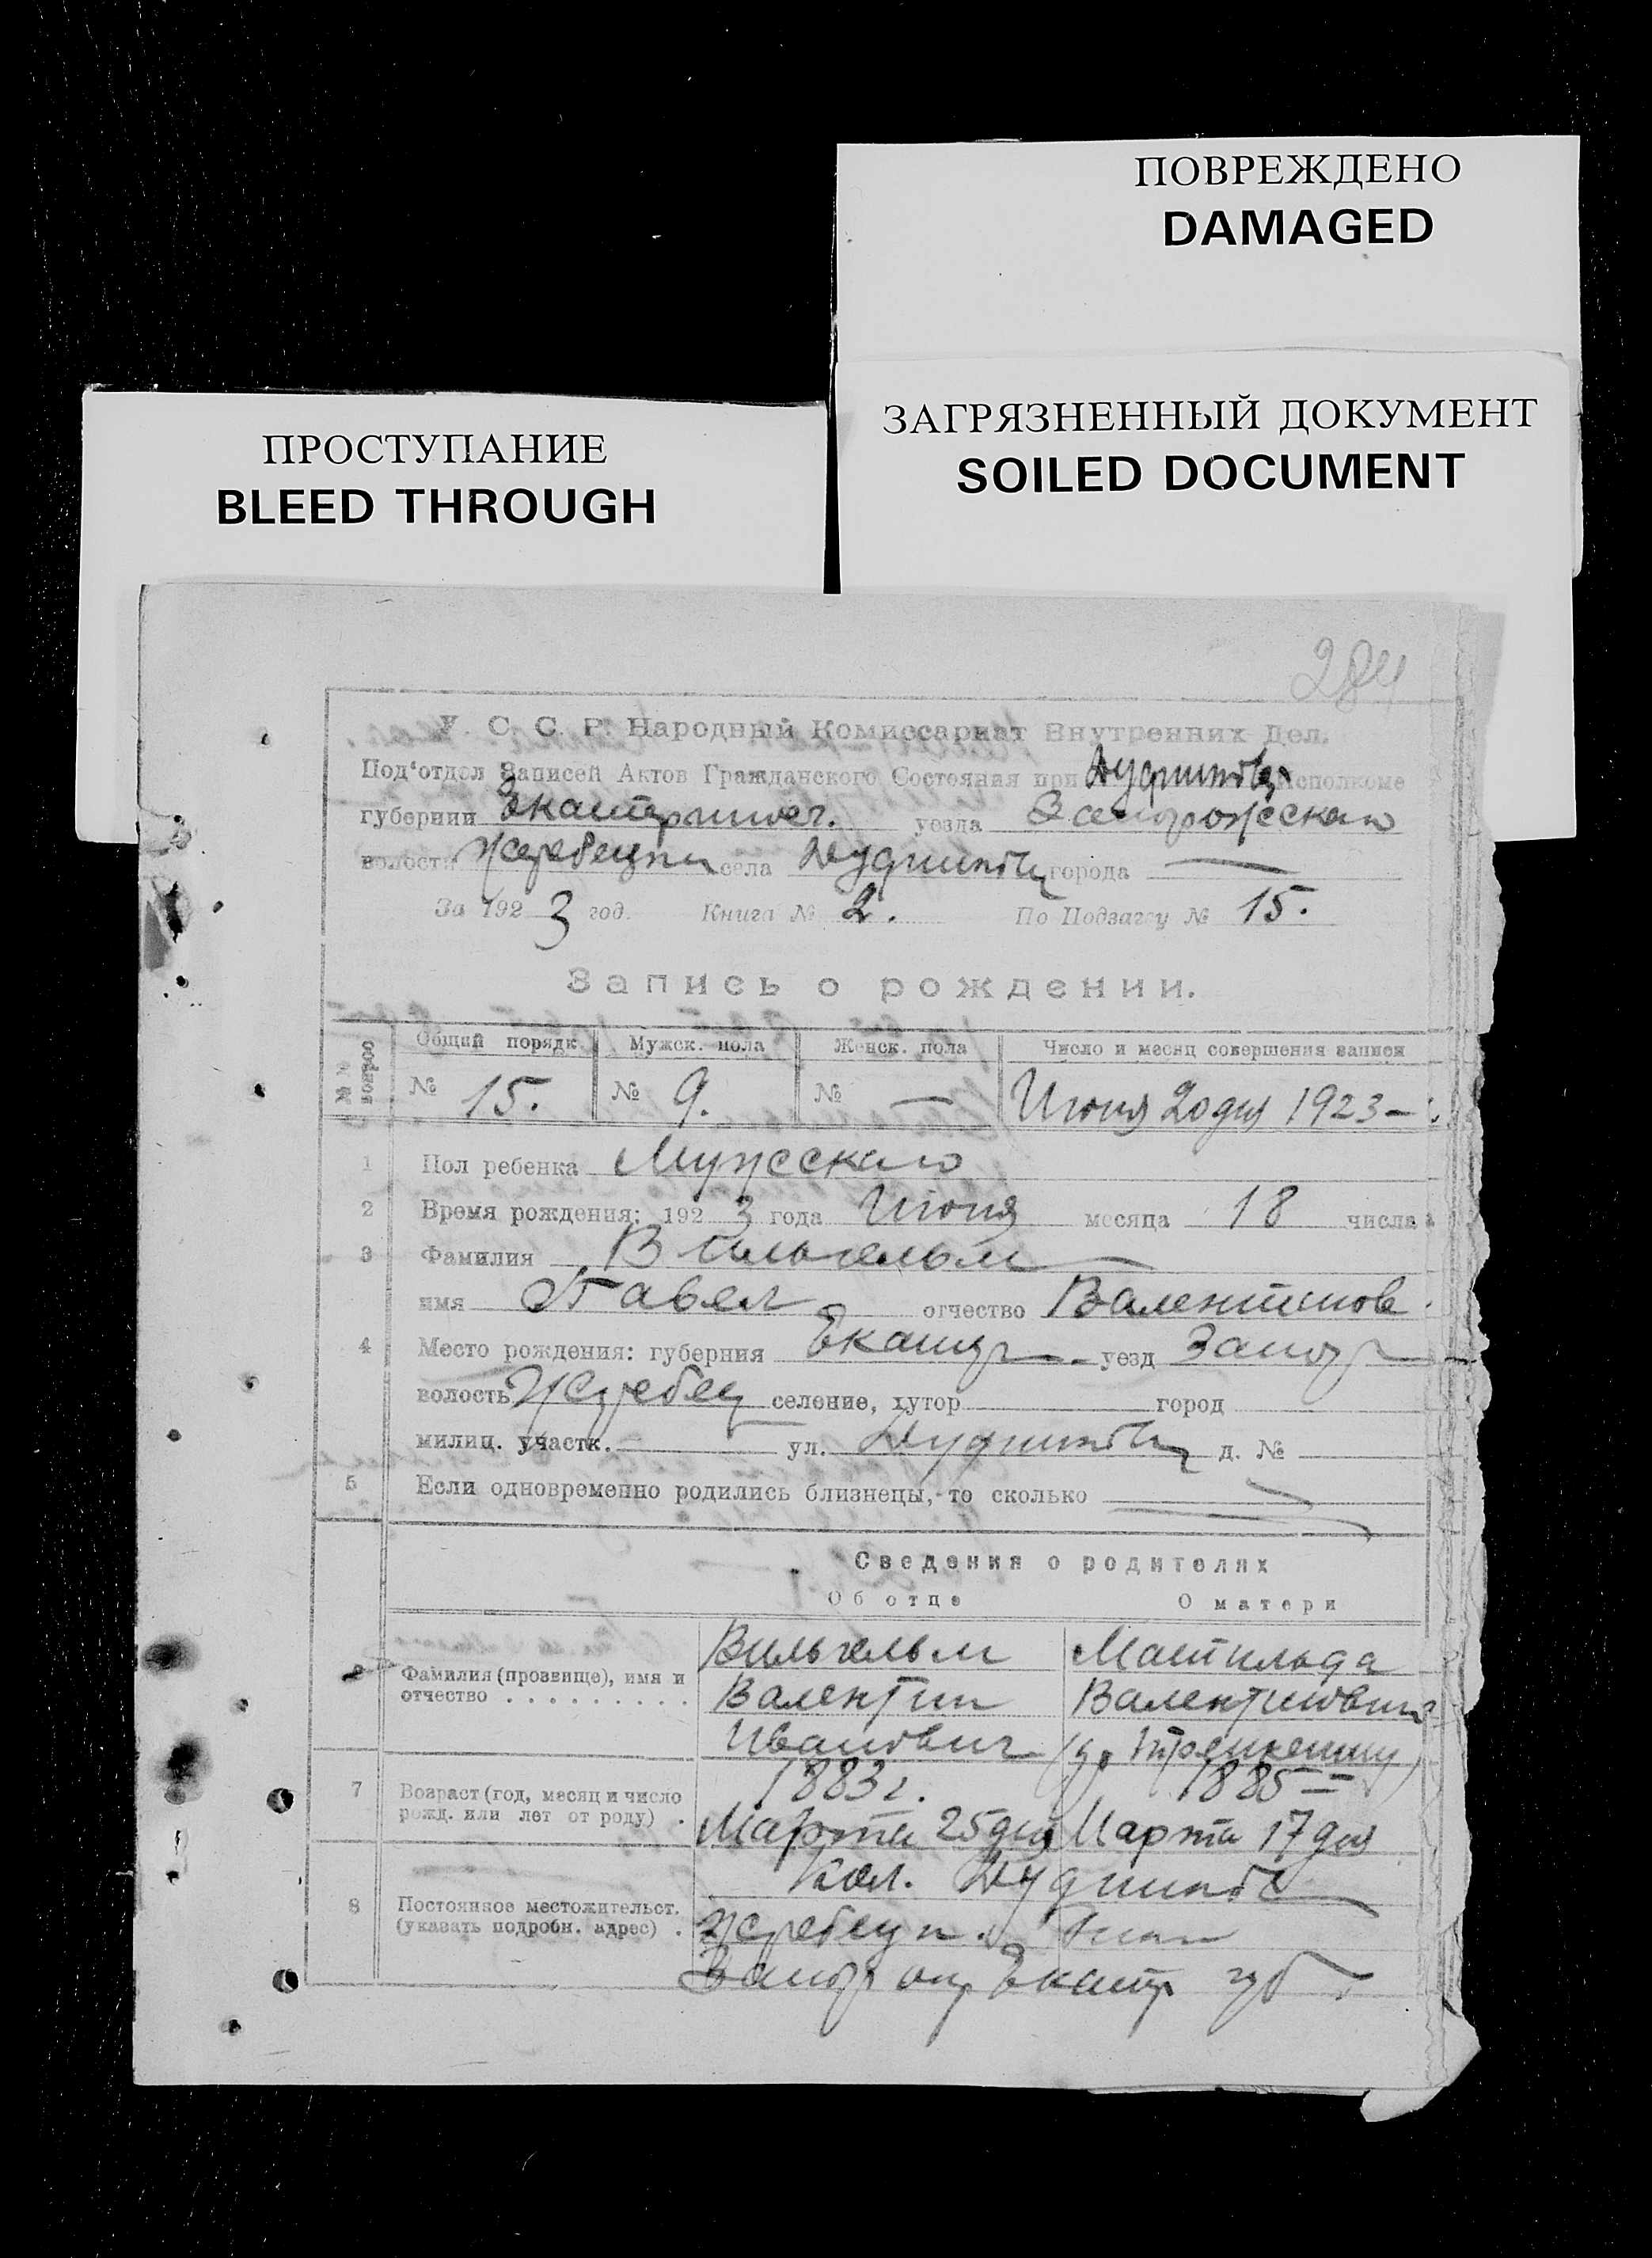 ПОВРЕЖДЕНО
DAMAGED
ЗАГРЯЗНЕННЫЙ ДОКУМЕНТ
SOILED DOCUMENT
ПРОСТУПАНИЕ
BLEED THROUGH
284
У. С. С. Р. Народный Комиссариат Внутренних Дел.
Под'отдел Записей Актов Гражданского Состояния при Исполкоме
губернии Екатеринос. уезда Запорожского
волости Жеребецкой села города —
За 1923 год. Книга № 2. По Подзагсу № 15.
Запись о рождении.
№№ вопросо
Общий порядк. Мужск. пола Женск. пола Число и месяц совершения записи
№ 15. № 9. № — Июня 20 дня 1923 —
1 Пол ребенка Мужского
2 Время рождения: 1923 года Июня месяца 18 числа
3 Фамилия Вильгельм
имя Павел отчество Валентинов.
4 Место рождения: губерния Екатер уезд Запор
волость Жеребец селение, хутор город
милиц. участк. ул. д. №
5 Если одновременно родились близнецы, то сколько
Сведения о родителях
Об отце О матери
6 Фамилия (прозвище), имя и отчество . . . . . . . . . .
Вильгельм Матильда
Валентин Валентиновна
Иванович
7 Возраст (год, месяц и число рожд. или лет от роду) .
1883 г. 1885 —
Марта 25 дня Марта 17 дня
8 Постоянное местожительст. (указать подробн. адрес) .
Кол.
Жеребецк.
Запор Екатер губ